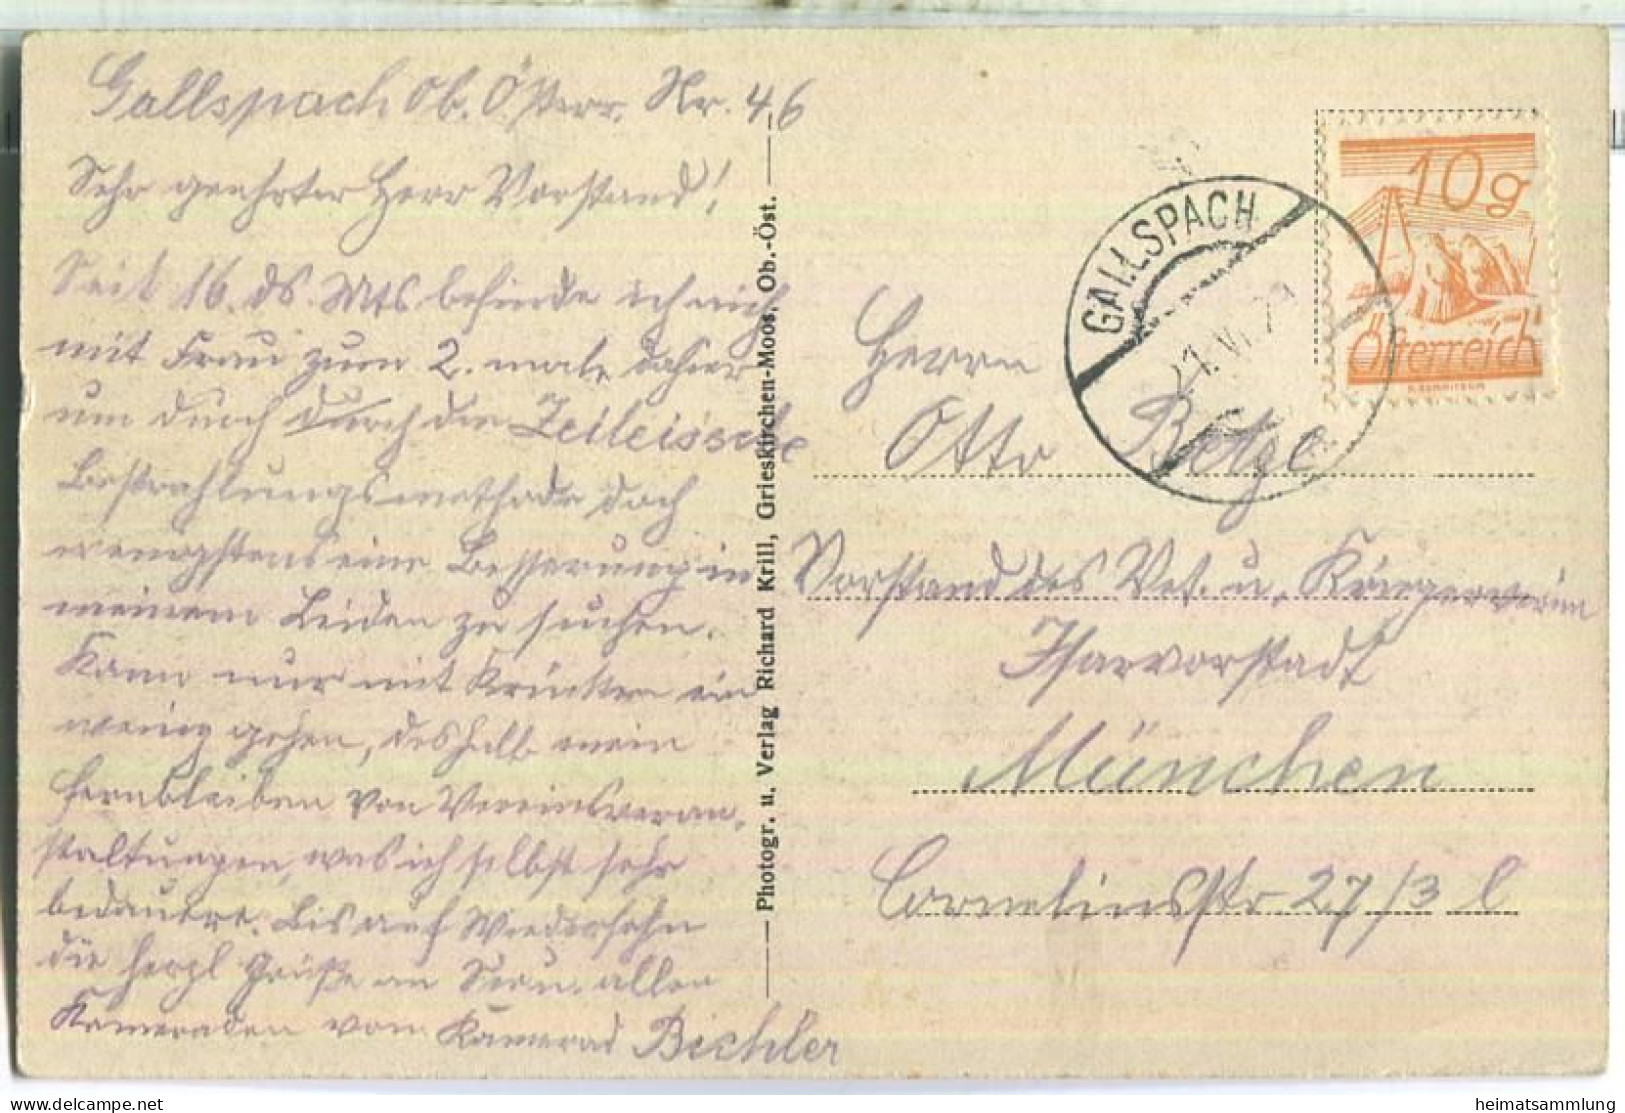 Gallspach Ob. Österr. Nr. 46
Sehr geehrter Herr Vorstand!
Seit 16. ds. Mts befinde ich mich
mit Frau zum 2. male dahier
um durch durch die Zeileissche
Bestrahlungsmethode doch
wenigstens eine Besserung in
meinem Leiden zu suchen.
Kann nur mit Krücken ein
wenig gehen, deshalb mein
Fernbleiben von Vereinsveran-
staltungen, was ich selbst sehr
bedauere. Bis auf Wiedersehn
die herzl Grüße an Sie u. allen
Kameraden vom Kamerad Bichler
Photogr. u. Verlag Richard Krill, Grieskirchen-Moos, Ob.-Öst.
GALLSPACH
21.VI.29
10g
Österreich
Herrn
Otto Betge
Vorstand des Vet. u. Kriegerverein
Isarvorstadt
München
Corneliusstr 27/3 l
heimatsammlung
delcampe.net